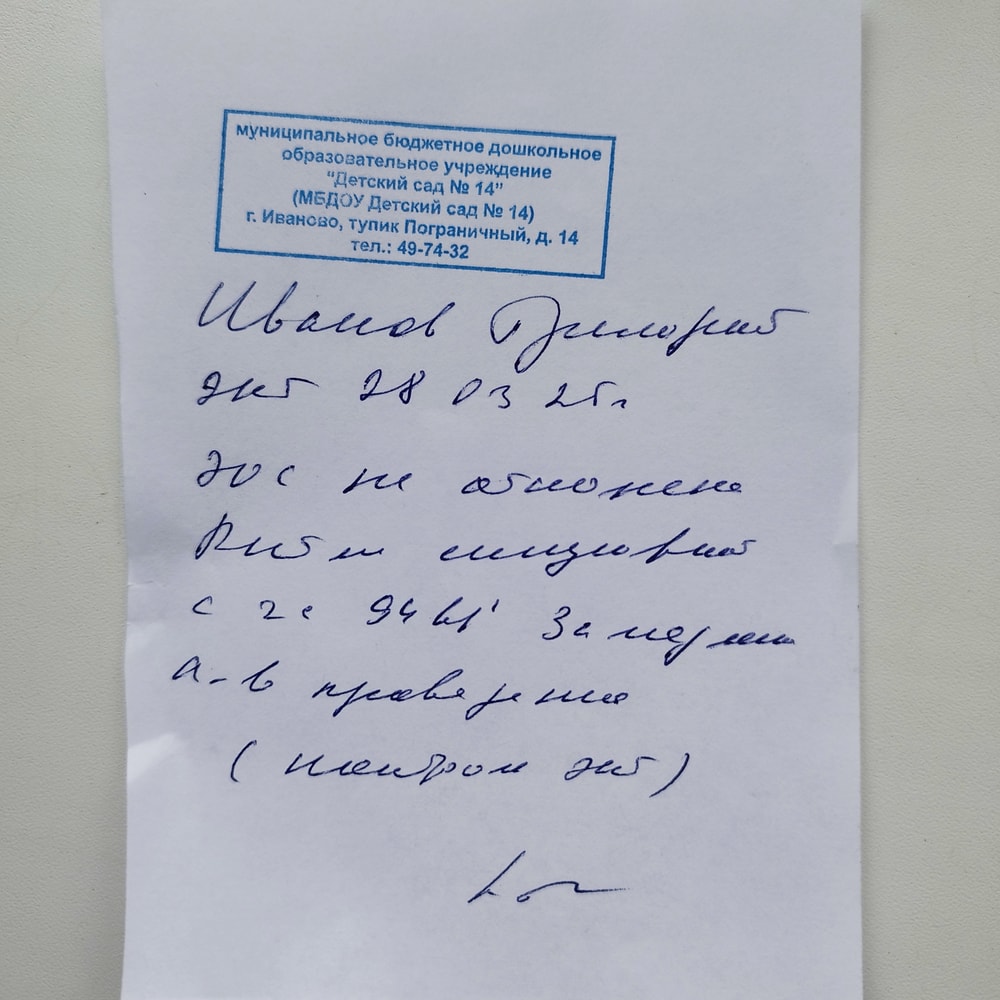 муниципальное бюджетное дошкольное
образовательное учреждение
"Детский сад № 14"
(МБДОУ Детский сад № 14)
г. Иваново, тупик Пограничный, д. 14
тел.: 49-74-32
Иванов
экг 28 03 25г
эос не отклонена
Ритм синусовый
с чс 94 Замедление
а-в проведения
(контроль экг)